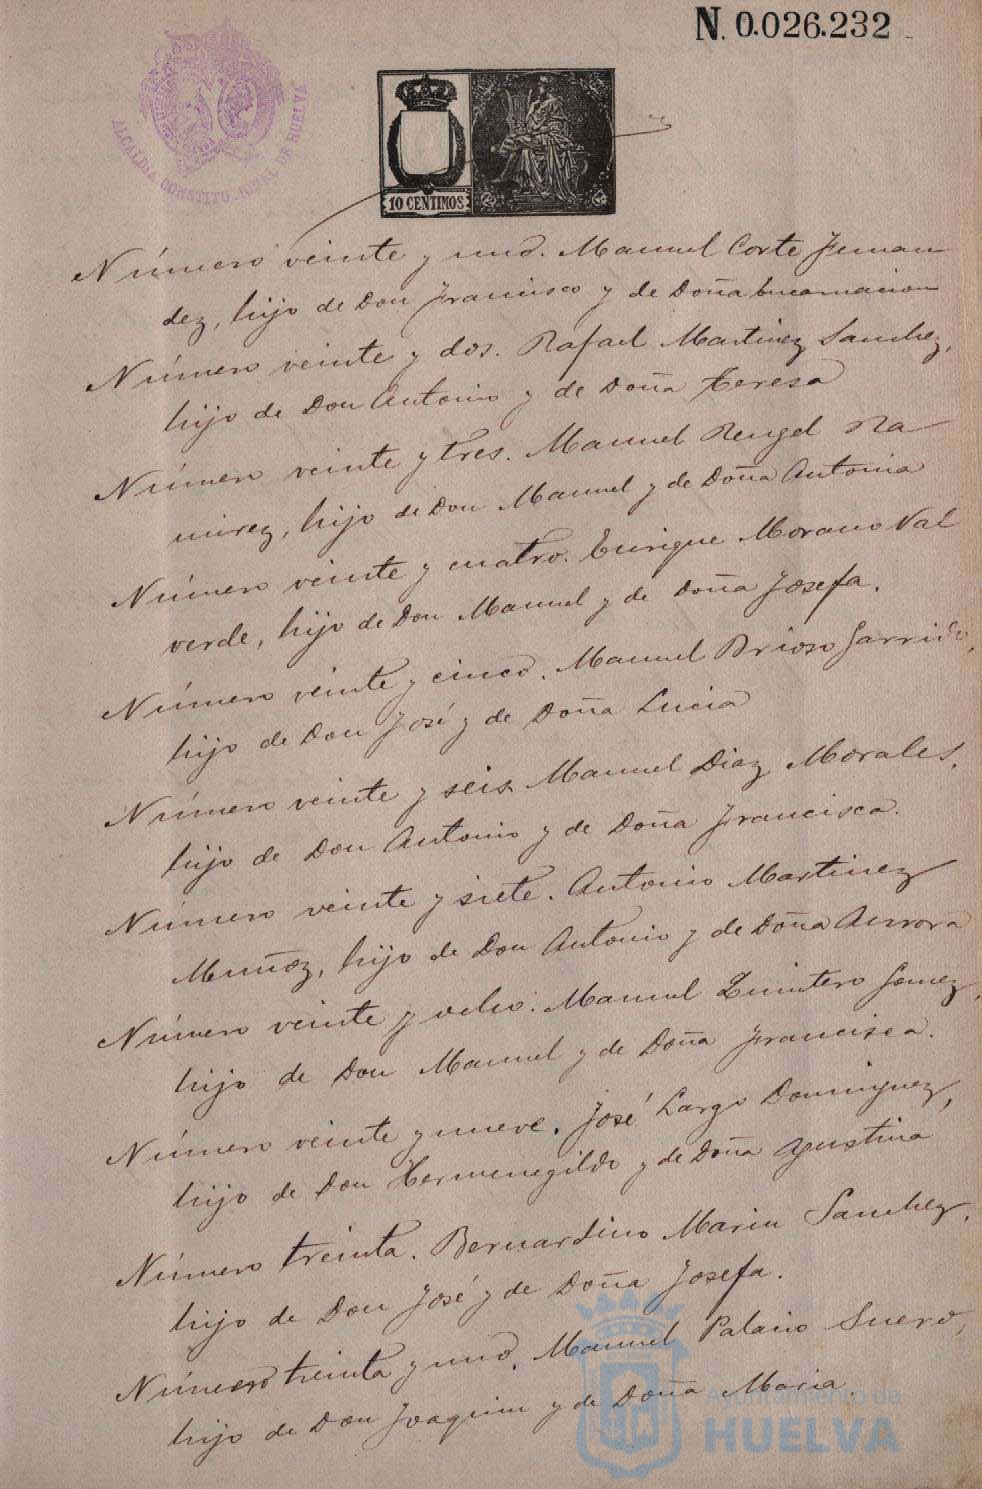 N. 0.026.232
ALCALDIA CONSTITUCIONAL DE HUELVA
10 CENTIMOS
Número veinte y uno. Manuel Corte Fernan
dez, hijo de Don Francisco y de Doña Encarnacion
Número veinte y dos. Rafael Martinez Sanchez,
hijo de Don Antonio y de Doña Teresa
Número veinte y tres. Manuel Rengel Ra
mirez, hijo de Don Manuel y de Doña Antonia
Número veinte y cuatro. Enrique Morano Val
verde, hijo de Don Manuel y de Doña Josefa.
Número veinte y cinco. Manuel Brioso Garrido,
hijo de Don José y de Doña Lucia
Número veinte y seis Manuel Diaz Morales,
hijo de Don Antonio y de Doña Francisca.
Número veinte y siete. Antonio Martinez
Muñoz, hijo de Don Antonio y de Doña Aurora
Número veinte y ocho. Manuel Quintero Gomez,
hijo de Don Manuel y de Doña Francisca.
Número veinte y nueve. José Largo Dominguez,
hijo de Don Hermenegildo y de Doña Agustina
Número treinta. Bernardino Marin Sanchez,
hijo de Don José y de Doña Josefa.
Número treinta y uno. Manuel Palacio Suero,
hijo de Don Joaquin y de Doña Maria.
Ayuntamiento de
HUELVA